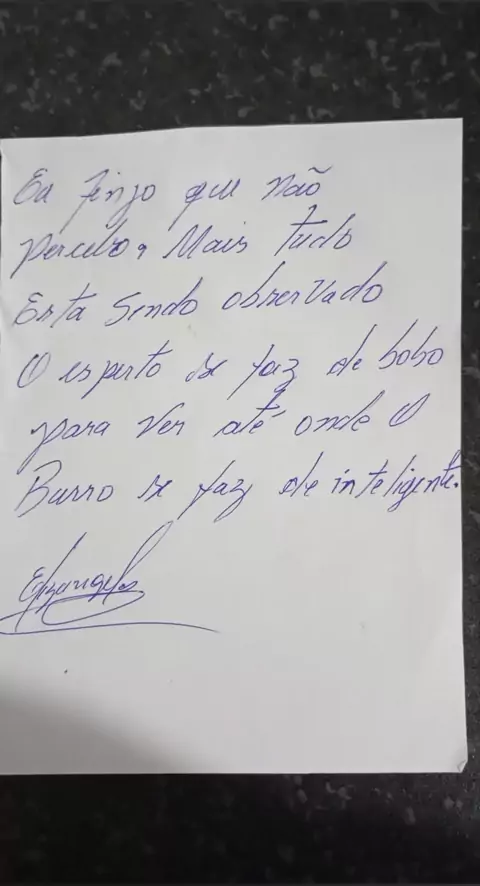 Eu finjo que não
percebo, Mais tudo
Esta Sendo observado
O esperto se faz de bobo
para Ver até onde O
Burro se faz de inteligente.
Elizangela